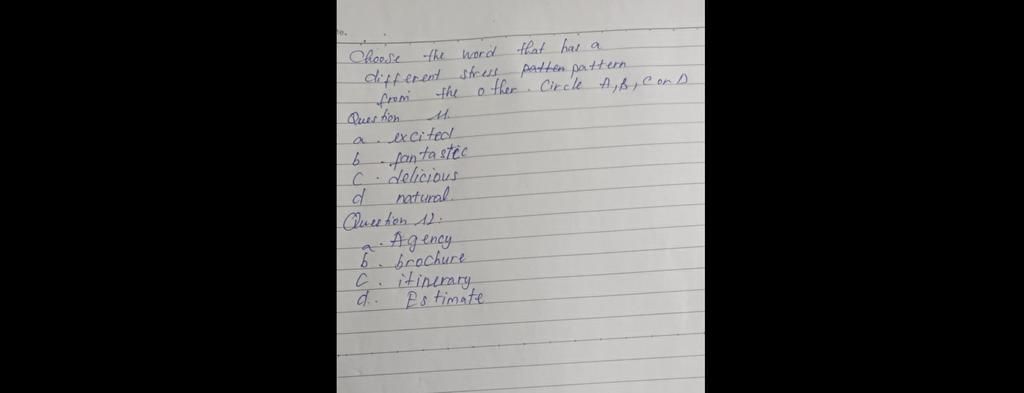 Choose the word that has a
different stress patten pattern
from the other. Circle A, B, C or D
Question 11.
a. excited
b. fantastic
c. delicious
d natural.
Question 12:
a. Agency
b. brochure
c. itinerary
d. Estimate